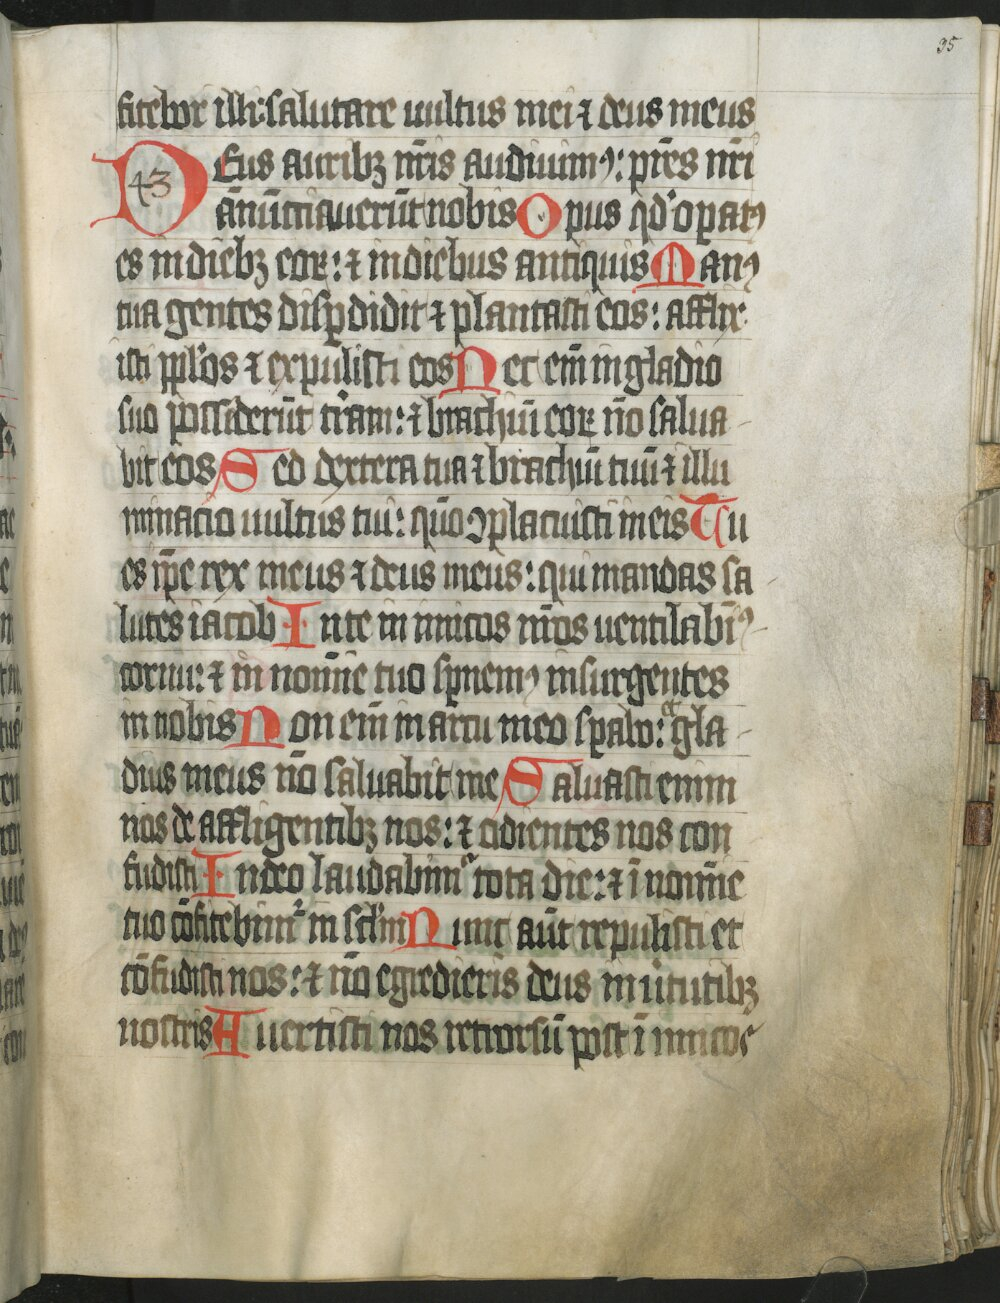 35
fitebor illi: salutare uultus mei ⁊ deus meus
43
DEus aurib̄ꝫ nr̄is audiuimꝰ: pr̄es nr̄i
ānūtiauerūt nobis Opus qd̓ opatꝰ
es in diebꝫ eoꝝ: ⁊ in diebus antiquis Manꝰ
tua gentes disꝑdidit ⁊ plantasti eos: afflix
isti ppl̓os ⁊ expulisti eos Nec em̄ in gladio
suo possiderūt tr̄am: ⁊ brachiū eoꝝ nō salua
bit eos Sed dextera tua ⁊ brachiū tuū ⁊ illu
minacio uultus tui: qūo ꝯplacuisti in eis Tu
es ip̄e rex meus ⁊ deus meus: qui mandas sa
lutes iacob In te in imicos nr̄os uentilabīꝰ
cornu: ⁊ in noīne tuo sp̄nemꝰ insurgentes
in nobis Non em̄ in arcu meo sꝑabo: et gla
dius meus nō saluabit me Saluasti enim
nos de affligentibꝫ nos: ⁊ odientes nos con
fudisti In deo laudabimͬ tota die: ⁊ ī noīne
tuo cōfitebimͬ in scl̓m Nunc aūt repulisti et
cōfudisti nos: ⁊ nō egredieris deus in uͥtutibꝫ
nostris Auertisti nos retrorsū post ī imicos